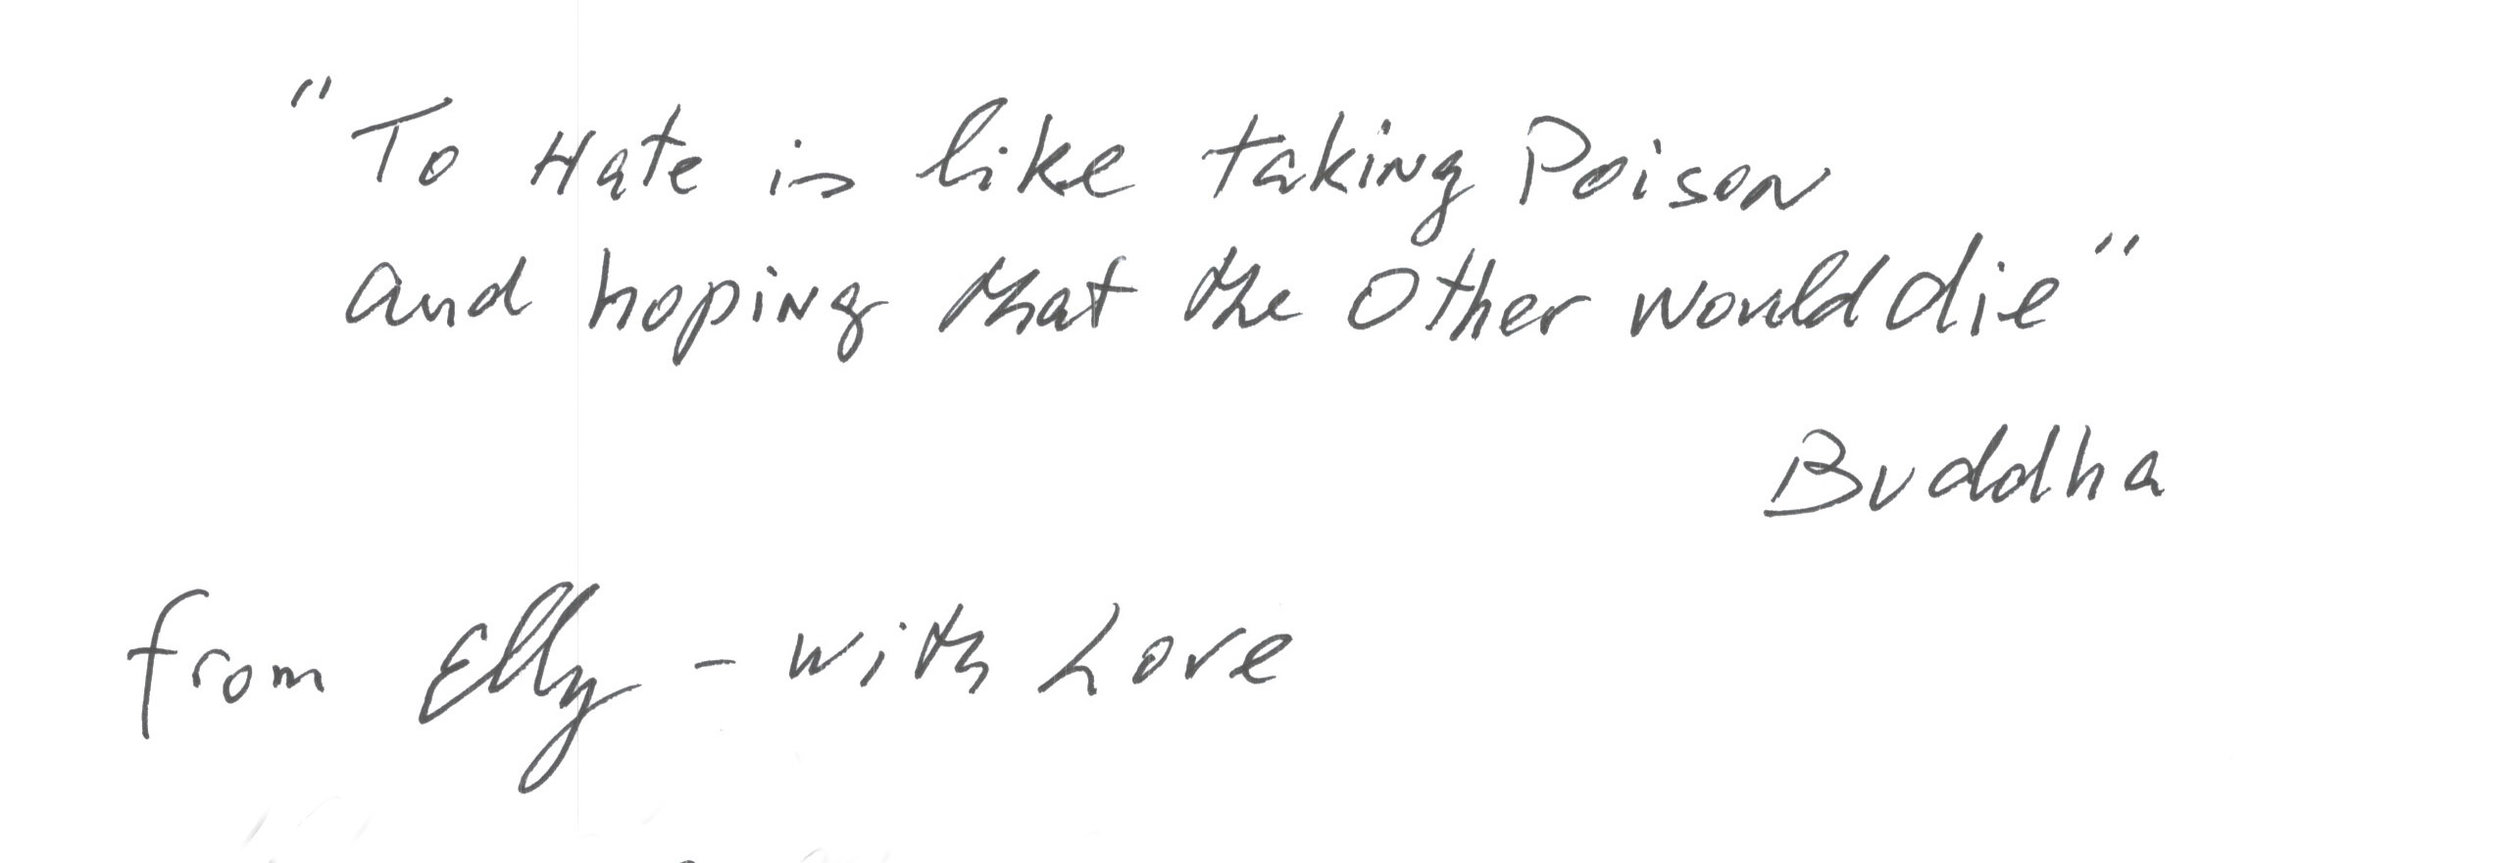 "To Hate is like taking Poison
and hoping that the Other would die"
Buddha
from Elly - with Love